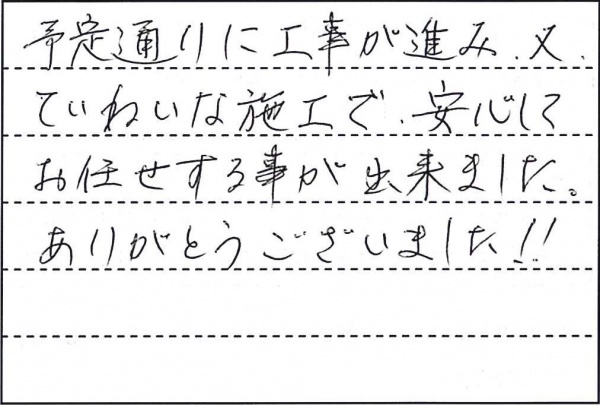 予定通りに工事が進み、又、
ていねいな施工で、安心して
お任せする事が出来ました。
ありがとうございました!!